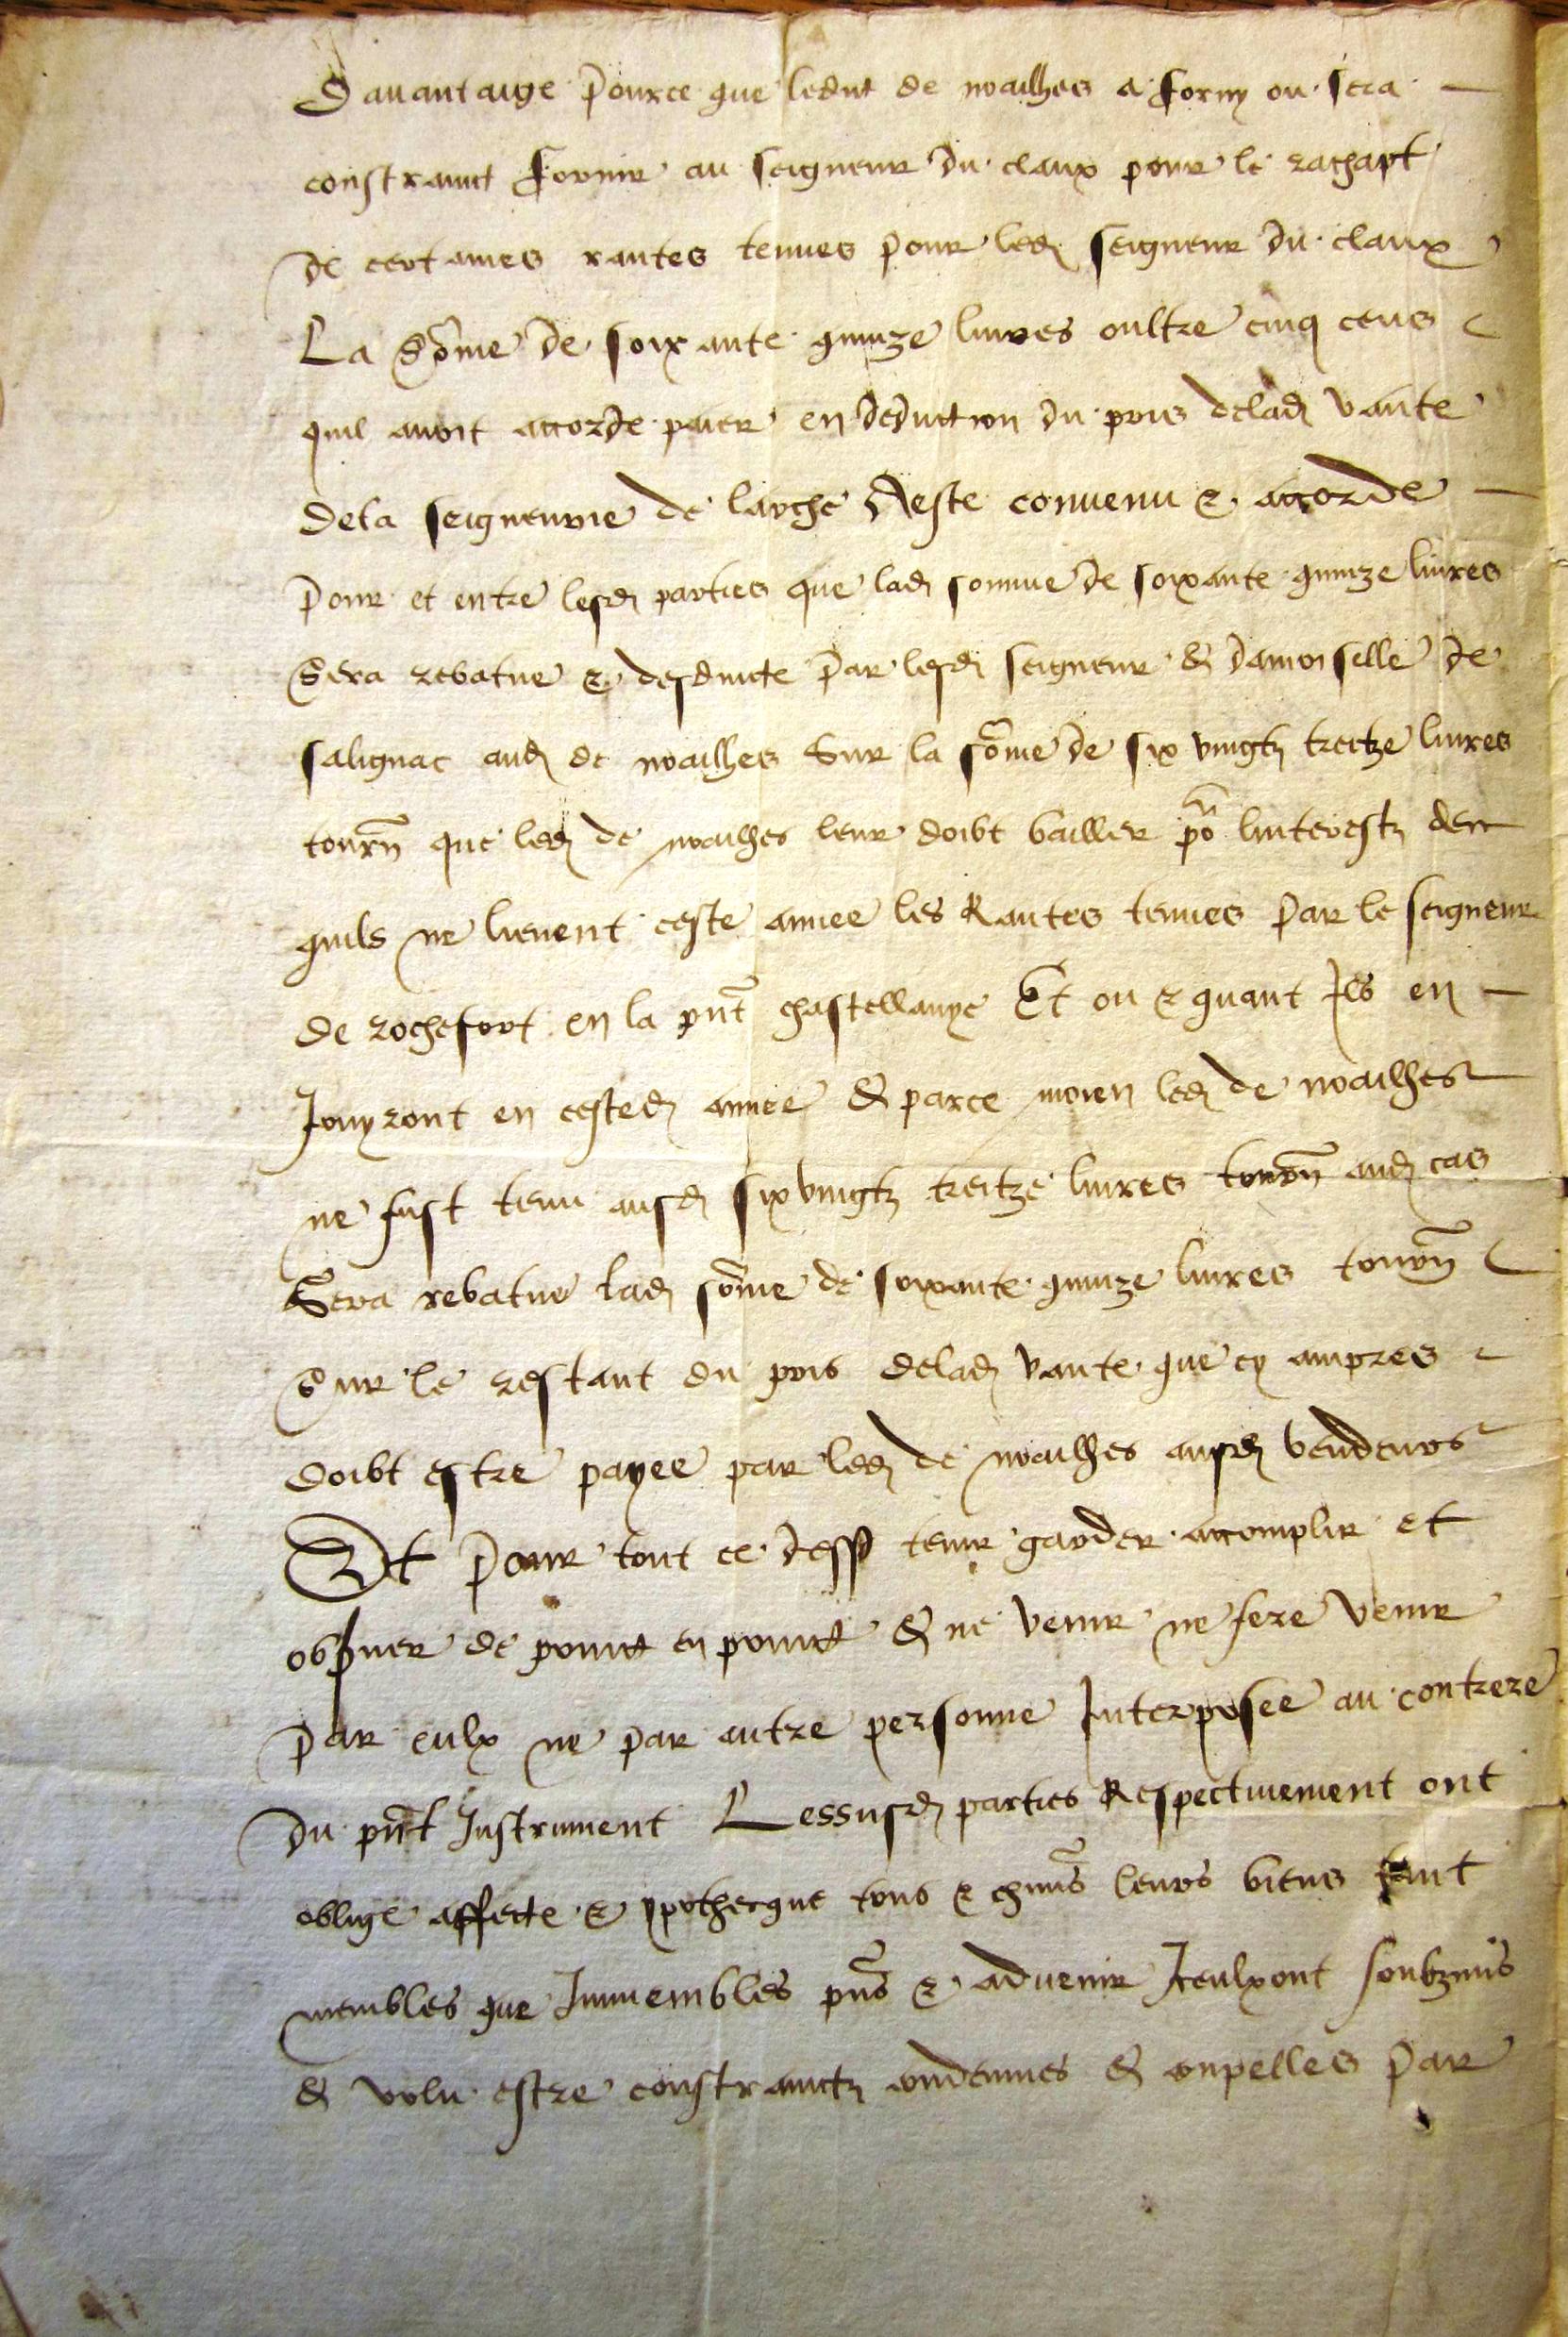 Davantaige pource que ledict de noailhes a forny ou sera
constrainct fornir au seigneur du claux pour le rachapt
de certaines rantes tenues pour led seigneur du claux
La some de soixante quinze livres oultre cinq cens
quil avoit accorde paier en deduction du pris delad vante
dela seigneurie de larche A este convenu & accorde
pour et entre lesd parties que lad somme de soixante quinze livres
Sera rebatue & desduicte par lesd seigneur & damoiselle de
salignac aud de noailhes Sur la some de six vingtz treitze livres
tourn que led de noailhes leur doibt bailler po linterestz de
quils ne lievent ceste annee les Rantes tenues par le seigneur
de rochefort en la pnt chastellanye Et ou & quant Ilz en
Jouyront en cested annee & parce moien led de noailhes
ne fust tenu ausd six vingtz treitze livres tourn aud cas
Sera rebatue lad some de soixante quinze livres tourn
Sur le restant du pris delad vante que cy ampres
doibt estre payee par led de noailhes ausd vendeurs
Et pour tout ce dessus tenir garder acomplir et
observer de poinct en poinct & ne venir ne fere venir
par eulx ne par autre personne Interposee au contrere
du pnt Instrument Lessusd parties Respectivement ont
oblige affecte & ypothecque tous & chuns leurs biens tant
meubles que Immeubles pns & advenir Iceulx ont soubzmis
& volu estre constrainctz condemnes & conpelles par